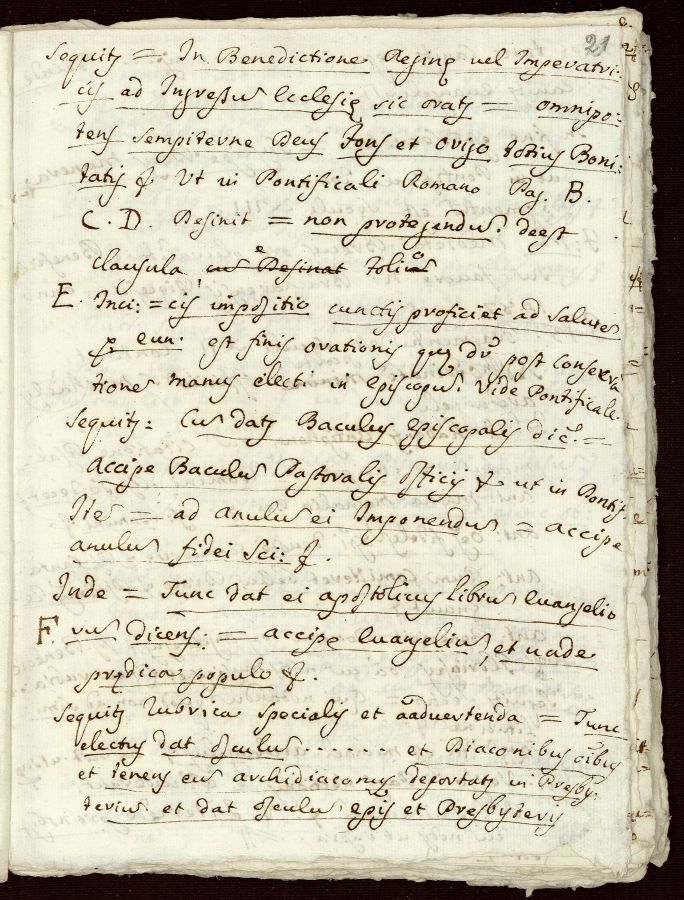 21
Sequitʒ = In Benedictione Reginę vel Imperatri:
cis ad Ingressus Ecclesię sic oratʒ = omnipo:
tens sempiterne Deus fons et origo totius Boni:
tatis & Vt in Pontificali Romano Pag. B.
C. D. Desinit = non protegendus. deest
clausula
E. Inci: = cis impositio cunctis proficiet ad salutē
& eun. est finis orationis quę dʳ post consecra
tionē manuū electi in Episcopū. Vide Pontificale.
Sequitʒ: Cū datʒ Baculus Episcopalis dicˢ. =
Accipe Baculū Pastoralis officij & ut in Pontif.
Itē = ad anulū ei Imponendū = accipe
anulū fidei Sci: &.
Inde = Tunc dat ei apostolicus librū Euangelio
F. rum dicens: = accipe Euangeliū, et uade
prędica populo &.
Sequitʒ Rubrica specialis et aduertenda = Tunc
electus dat osculū . . . . . . et Diaconibus oibus
et tenens eum archidiaconus deportatʒ in Presby:
teriū et dat osculū epis et Presbyteris